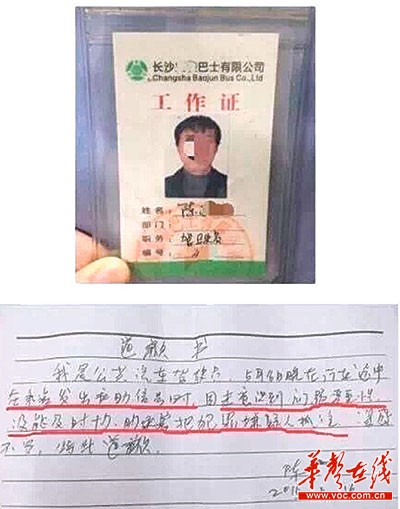 长沙 巴士有限公司
Changsha Baojun Bus Co.,Ltd
工作证
姓名：陈
部门：
职务：驾驶员
编号：
道歉书
我是公共汽车驾驶员，5月6日晚在行车途中
在乘客发出求助信号时，因未意识到问题严重性
没能及时协助乘客把犯罪嫌疑人抓住
不当，特此道歉
陈
华声在线
www.voc.com.cn